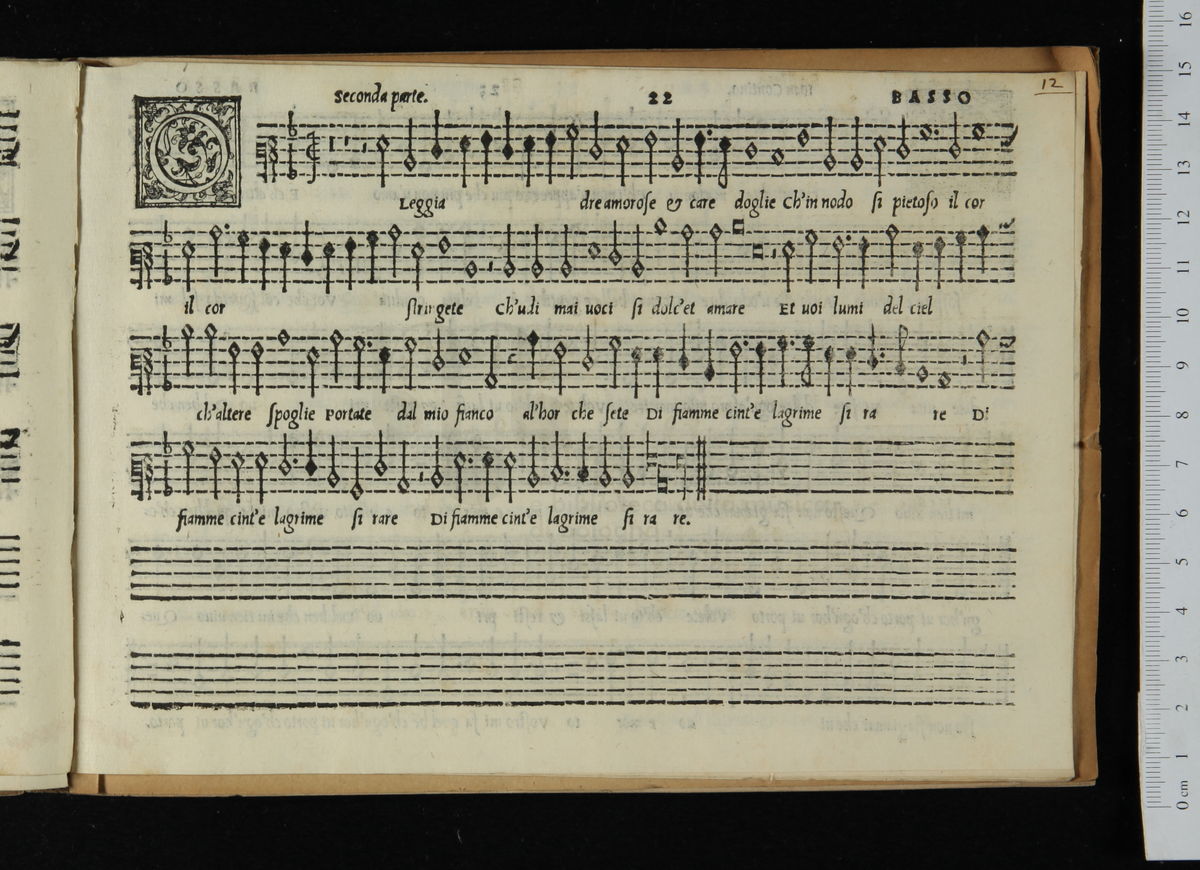 12
Seconda parte. 22 BASSO
O Leggia dre amorose & care doglie Ch'in nodo si pietoso il cor
il cor stringete Ch'udi mai uoci si dolc'et amare Et uoi lumi del ciel
ch'altere spoglie Portate dal mio fianco al'hor che sete Di fiamme cint'e lagrime si ra re Di
fiamme cint'e lagrime si rare Di fiamme cint'e lagrime si ra re.
16
15
14
13
12
11
10
9
8
7
6
5
4
3
2
1
0 cm